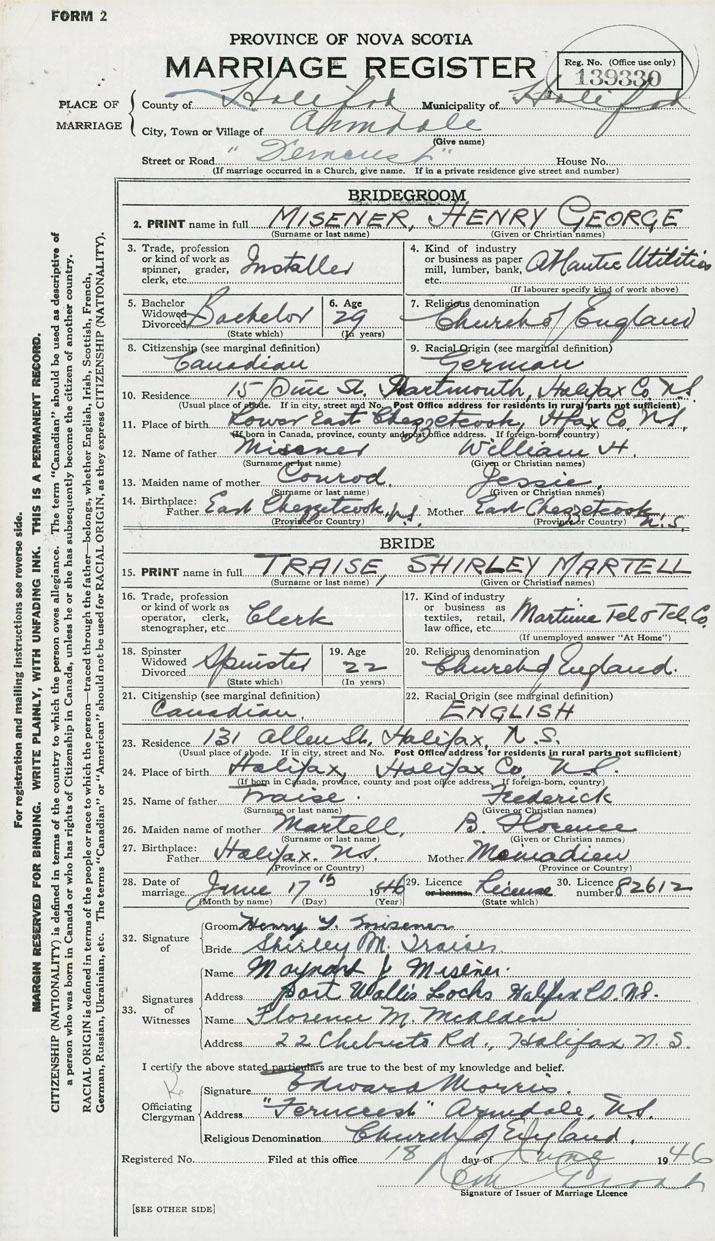 FORM 2
PROVINCE OF NOVA SCOTIA
MARRIAGE REGISTER
Reg. No. (Office use only)
139330
PLACE OF MARRIAGE
County of Halifax Municipality of Halifax
City, Town or Village of Armdale
(Give name)
Street or Road "Ferncrest" House No.
(If marriage occurred in a Church, give name. If in a private residence give street and number)
BRIDEGROOM
2. PRINT name in full MISENER, HENRY GEORGE
(Surname or last name) (Given or Christian names)
3. Trade, profession or kind of work as spinner, grader, clerk, etc. Installer
4. Kind of industry or business as paper mill, lumber, bank, etc. Atlantic Utilities
(If labourer specify kind of work above)
5. Bachelor Widowed Divorced Bachelor
(State which)
6. Age 29
(In years)
7. Religious denomination
Church of England
8. Citizenship (see marginal definition)
Canadian
9. Racial Origin (see marginal definition)
German
10. Residence 15 Pine St. Dartmouth, Halifax Co. N.S.
(Usual place of abode. If in city, street and No. Post Office address for residents in rural parts not sufficient)
11. Place of birth Lower East Chezzetcook, Hfax Co. N.S.
(If born in Canada, province, county and post office address. If foreign-born, country)
12. Name of father Misener William H.
(Surname or last name) (Given or Christian names)
13. Maiden name of mother Conrod Jessie
(Surname or last name) (Given or Christian names)
14. Birthplace:
Father East Chezzetcook, N.S. Mother East Chezzetcook N.S.
(Province or Country) (Province or Country)
BRIDE
15. PRINT name in full TRAISE, SHIRLEY MARTELL
(Surname or last name) (Given or Christian names)
16. Trade, profession or kind of work as operator, clerk, stenographer, etc. Clerk
17. Kind of industry or business as textiles, retail, law office, etc. Maritime Tel & Tel. Co.
(If unemployed answer "At Home")
18. Spinster Widowed Divorced Spinster
(State which)
19. Age 22
(In years)
20. Religious denomination
Church of England.
21. Citizenship (see marginal definition)
Canadian.
22. Racial Origin (see marginal definition)
ENGLISH
23. Residence 131 Allen St. Halifax, N.S.
(Usual place of abode. If in city, street and No. Post Office address for residents in rural parts not sufficient)
24. Place of birth Halifax, Halifax Co. N.S.
(If born in Canada, province, county and post office address. If foreign-born, country)
25. Name of father Traise. Frederick
(Surname or last name) (Given or Christian names)
26. Maiden name of mother Martell, B. Florence
(Surname or last name) (Given or Christian names)
27. Birthplace:
Father Halifax. N.S. Mother
(Province or Country) (Province or Country)
28. Date of marriage June 17th 1946
(Month by name) (Day) (Year)
29. Licence or banns. License
(State which)
30. Licence number 82612
32. Signature of
Groom Henry G. Misener
Bride Shirley M. Traise
33. Signatures of Witnesses
Name Misener.
Address Port Wallis Locks Halifax Co. N.S.
Name Florence M.
Address 22 Chebucto Rd., Halifax N.S.
I certify the above stated particulars are true to the best of my knowledge and belief.
Officiating Clergyman
Signature Edward Morris.
Address "Ferncrest" Armdale, N.S.
Religious Denomination Church of England.
Registered No. Filed at this office 18 day of June 1946
Signature of Issuer of Marriage Licence
[SEE OTHER SIDE]
For registration and mailing instructions see reverse side.
MARGIN RESERVED FOR BINDING. WRITE PLAINLY, WITH UNFADING INK. THIS IS A PERMANENT RECORD.
CITIZENSHIP (NATIONALITY) is defined in terms of the country to which the person owes allegiance. The term "Canadian" should be used as descriptive of
a person who was born in Canada or who has rights of Citizenship in Canada, unless he or she has subsequently become the citizen of another country.
RACIAL ORIGIN is defined in terms of the people or race to which the person—traced through the father—belongs, whether English, Irish, Scottish, French,
German, Russian, Ukrainian, etc. The terms "Canadian" or "American" should not be used for RACIAL ORIGIN, as they express CITIZENSHIP (NATIONALITY).